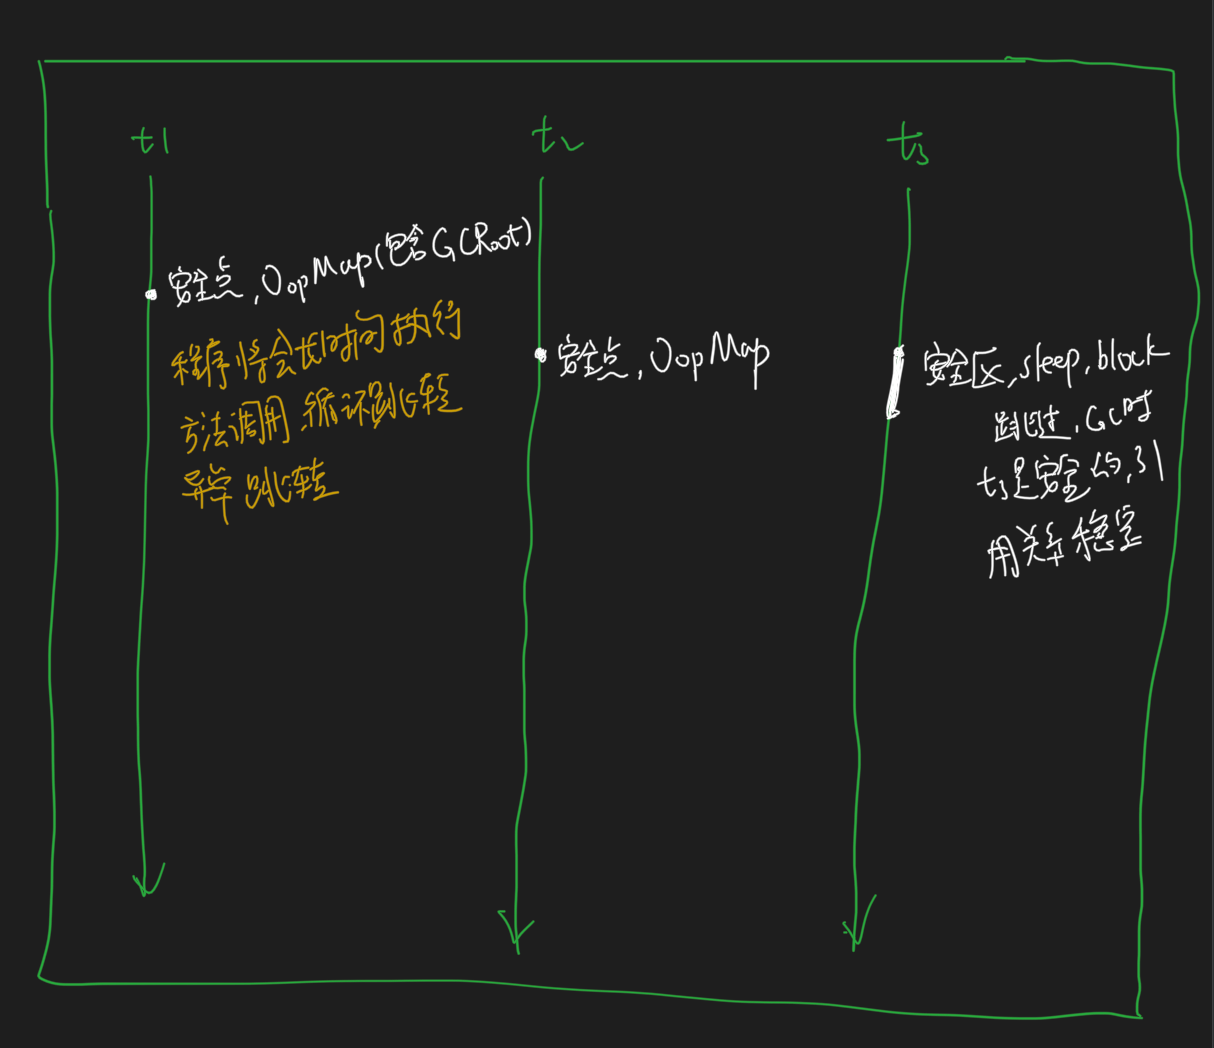 t1
t2
t3
安全点,OopMap(包含GCRoot)
程序将会长时间执行
方法调用,循环跳转
异常跳转
安全点,OopMap
安全区,sleep,block
跳过,GC时
t3是安全的,引
用关系稳定